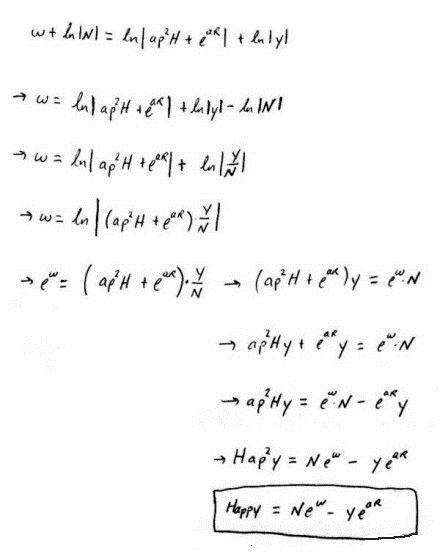 ω + ln|N| = ln|ap²H + e^aR| + ln|y|
→ ω = ln|ap²H + e^aR| + ln|y| - ln|N|
→ ω = ln|ap²H + e^aR| + ln|y/N|
→ ω = ln|(ap²H + e^aR)·y/N|
→ e^ω = (ap²H + e^aR)·y/N → (ap²H + e^aR)y = e^ω·N
→ ap²Hy + e^aR y = e^ω·N
→ ap²Hy = e^ω·N - e^aR y
→ Hap²y = Ne^ω - ye^aR
Happy = Ne^ω - ye^aR